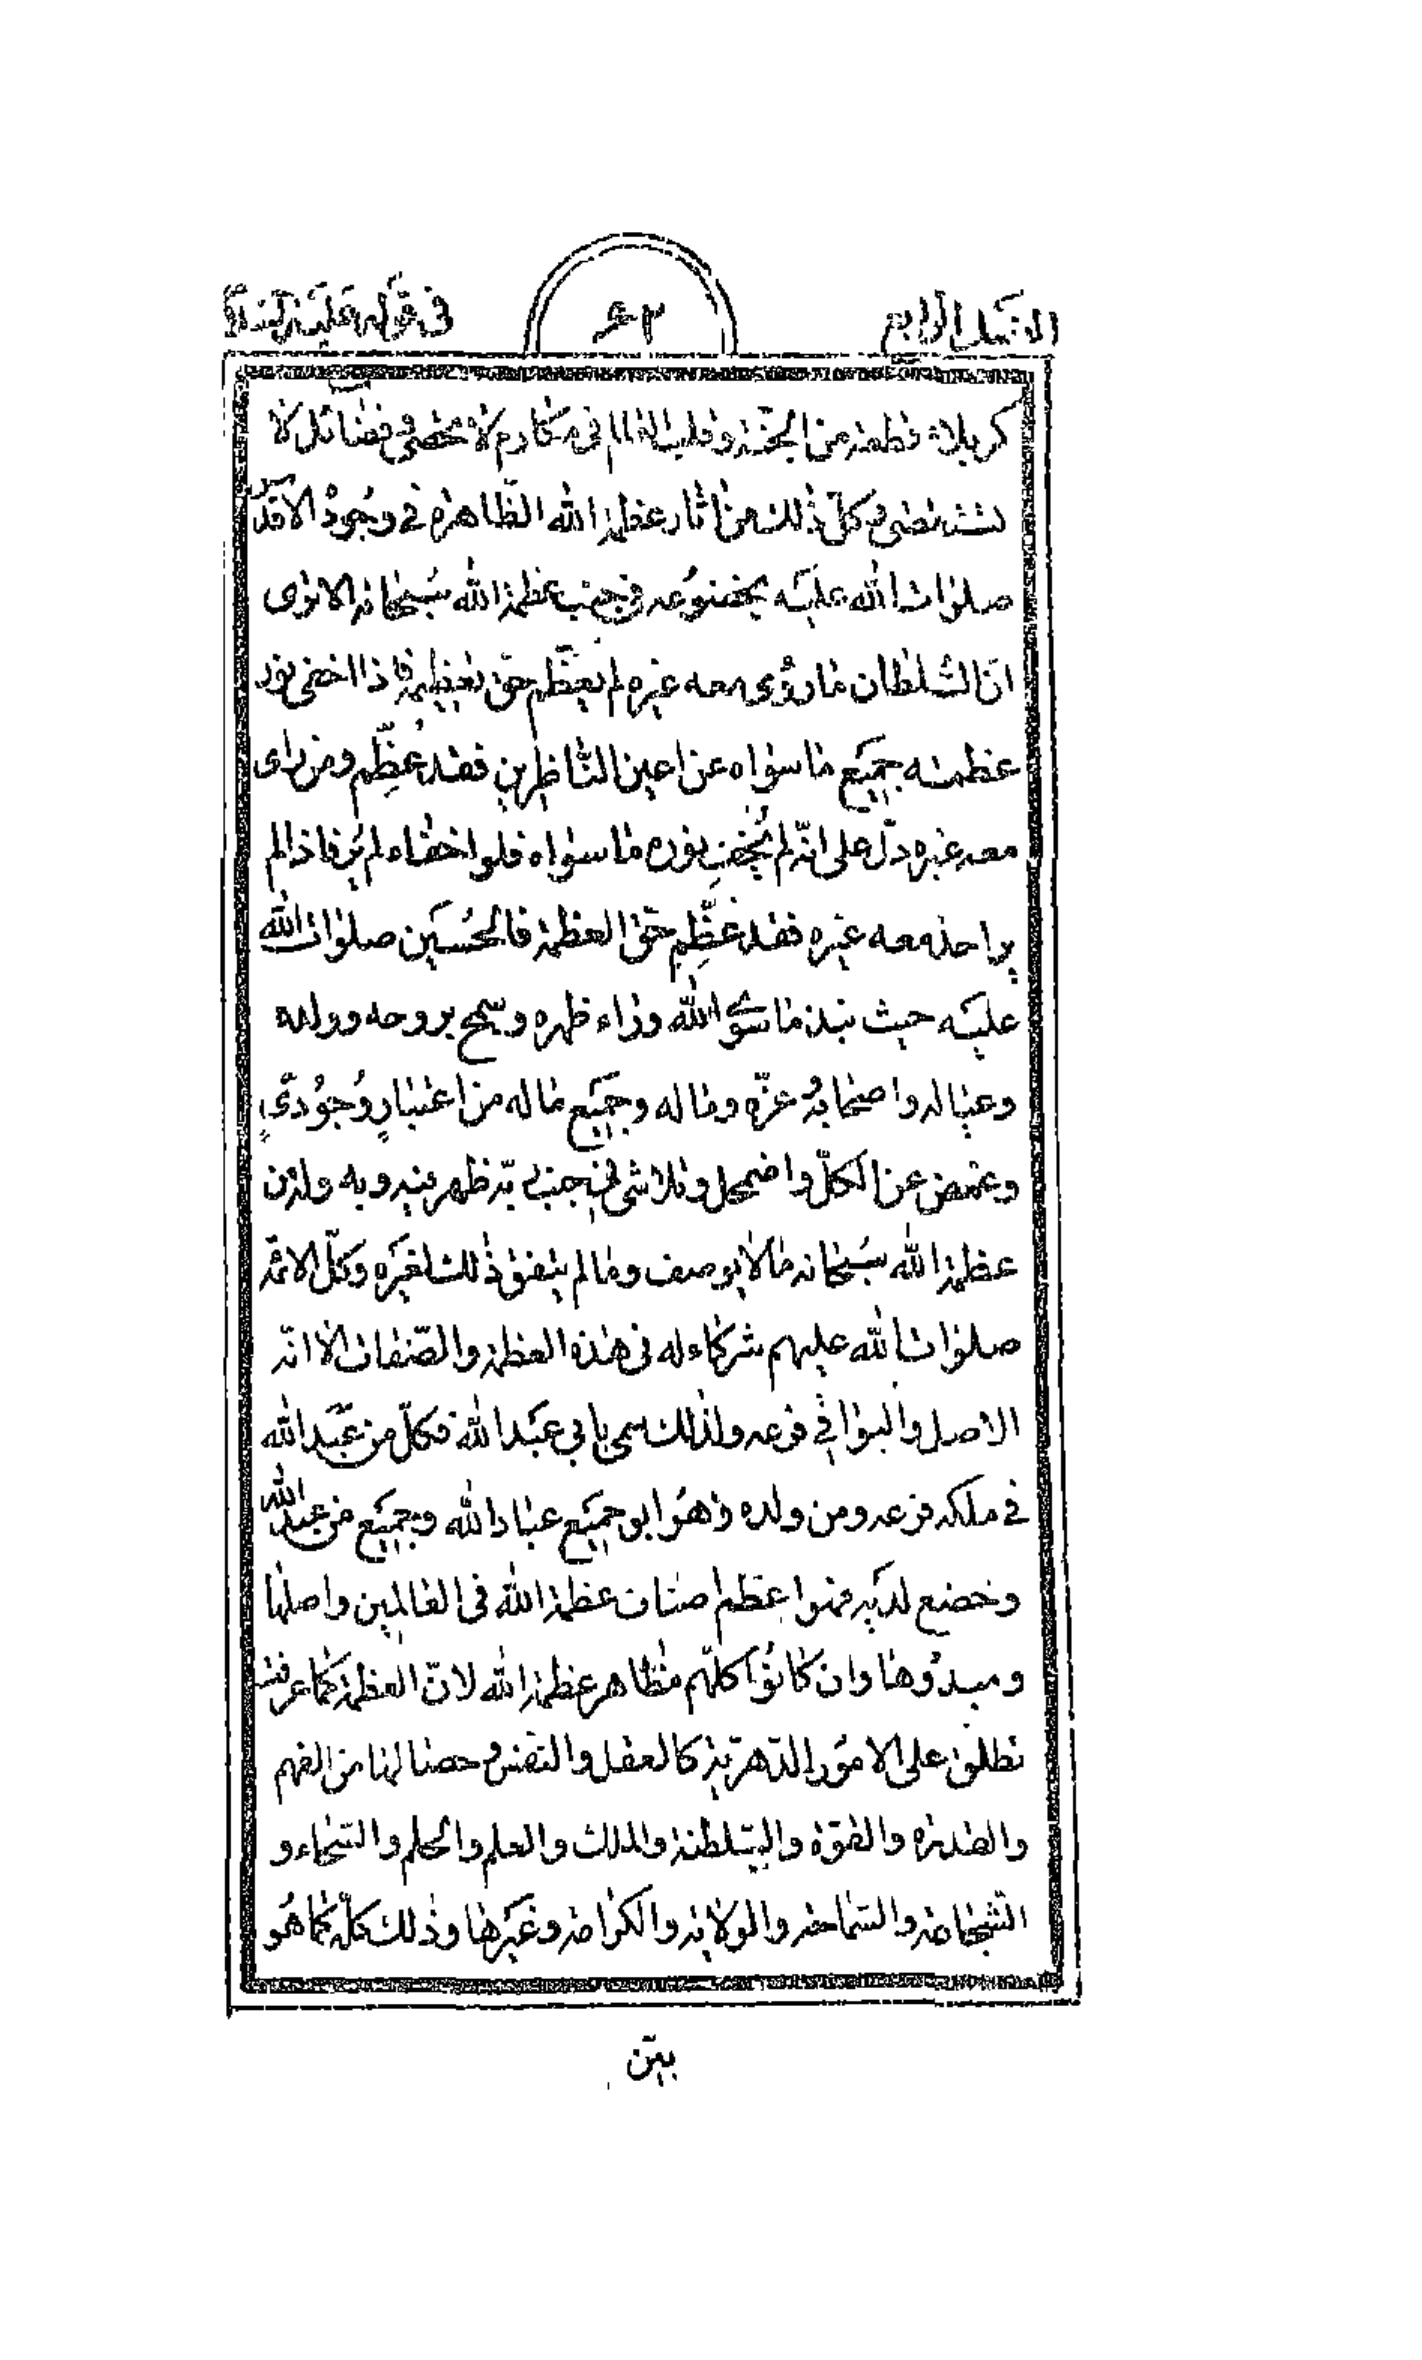 في قوله عليه السلام
٦٢
الفصل الرابع
كربلاء قطعة من الجنة وقلب في مكارم لا تحصى وفضائل لا
تستقصى وكلّ ذلك من اثار عظمة الله الظّاهرة في وجوده الاقدس
صلوات الله عليه بخضوعه في جنب عظمة الله سبحانه الا ترى
انّ السّلطان ما رؤى معه غيره لم يعظّم حقّ تعظيمه فاذا اخفى نور
عظمته جميع ما سواه عن اعين النّاظرين فقد عُظِّم ومن راى
معه غيره دلّ على انّه لم يُخفِ نوره ما سواه فلو اخفاه لم يُر فاذا لم
ير احد معه غيره فقد عُظِّم حقّ العظمة فالحسين صلوات الله
عليه حيث نبذ ما سوى الله وراء ظهره وسمح بروحه وولده
وعياله واصحابه وعزّه وماله وجميع ماله من اعتبارٍ وُجُودىٍّ
وغمض عن الكلّ واضمحل وتلاشى في جنب ربّه ظهر فيه وبه ولدن
عظمة الله سبحانه مالا يوصف وما لم يتفق ذلك لغيره وكلّ الائمّة
صلوات الله عليهم شركاء له في هذه العظمة والصّفات الا انّه
الاصل والبواقي فرعه ولذلك سمى بابي عبد الله فكلّ من عبد الله
في ملكه فرعه ومن ولده وهو ابو جميع عباد الله وجميع من عبد الله
وخضع لديه فهو اعظم صفات عظمة الله في العالمين واصلها
ومبدؤها وان كانوا كلّهم مظاهر عظمة الله لانّ العظمة كما عرفت
تطلق على الامور الدّهريّة كالعقل والنّفس وخصالها من الفهم
والقدرة والقوّة والسّلطنة والملك والعلم والحلم والسّخاء و
الشّجاعة والسّماحة والولاية والكرامة وغيرها وذلك كلّه كما هو
بيّن